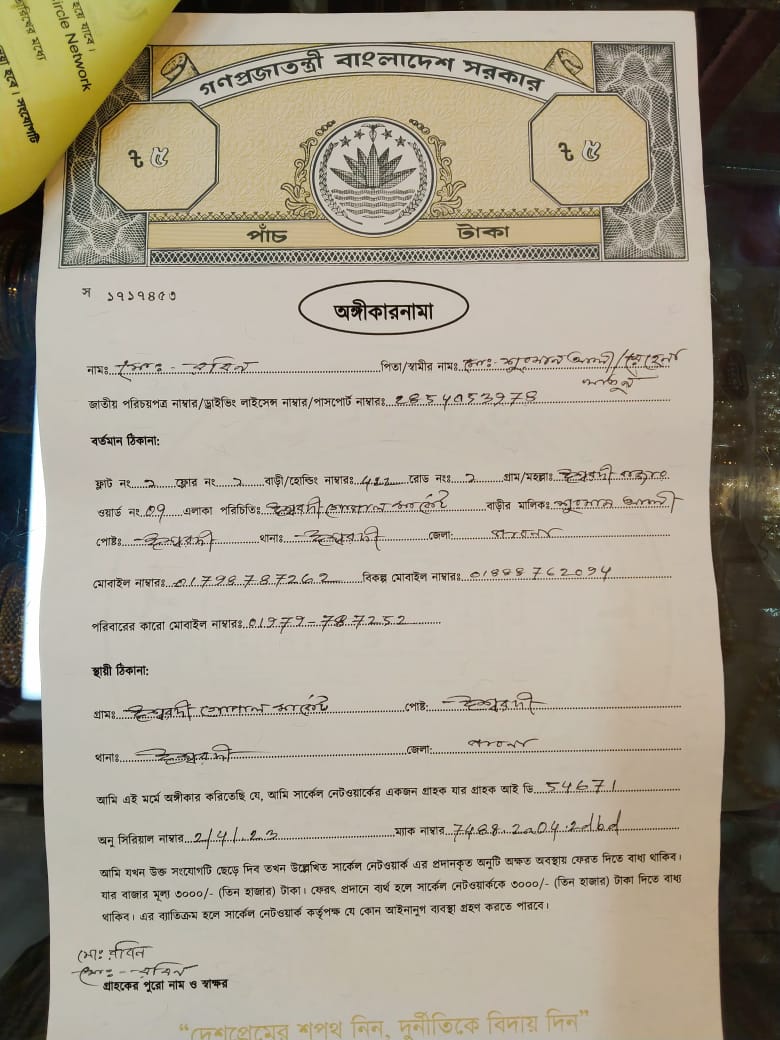 হয়ে যাবে।
Circle Network
রিখের মধ্যে
হবে। সংযোগটি
গণপ্রজাতন্ত্রী বাংলাদেশ সরকার
৳ ৫
৳ ৫
পাঁচ টাকা
স ১৭১৭৪৫৩
অঙ্গীকারনামা
নামঃ মোঃ- রবিন পিতা/স্বামীর নামঃ মোঃ- আলী/
জাতীয় পরিচয়পত্র নাম্বার/ড্রাইভিং লাইসেন্স নাম্বার/পাসপোর্ট নাম্বারঃ 2854053978
বর্তমান ঠিকানা:
ফ্লাট নং ২ ফ্লোর নং ২ বাড়ী/হোল্ডিং নাম্বারঃ 422 রোড নংঃ ২ গ্রাম/মহল্লাঃ ঈশ্বরদী বাজার
ওয়ার্ড নং 09 এলাকা পরিচিতিঃ ঈশ্বরদী গোপাল মার্কেট বাড়ীর মালিকঃ আলী
পোষ্টঃ ঈশ্বরদী থানাঃ ঈশ্বরদী জেলা: পাবনা
মোবাইল নাম্বারঃ 01798787262 বিকল্প মোবাইল নাম্বারঃ 01888762094
পরিবারের কারো মোবাইল নাম্বারঃ 01979-787252
স্থায়ী ঠিকানা:
গ্রামঃ ঈশ্বরদী গোপাল মার্কেট পোষ্ট: ঈশ্বরদী
থানাঃ ঈশ্বরদী জেলা: পাবনা
আমি এই মর্মে অঙ্গীকার করিতেছি যে, আমি সার্কেল নেটওয়ার্কের একজন গ্রাহক যার গ্রাহক আই ডি 54671
অনু সিরিয়াল নাম্বার 2/4/23 ম্যাক নাম্বার 7488.2a04.2dbd
আমি যখন উক্ত সংযোগটি ছেড়ে দিব তখন উল্লেখিত সার্কেল নেটওয়ার্ক এর প্রদানকৃত অনুটি অক্ষত অবস্থায় ফেরত দিতে বাধ্য থাকিব।
যার বাজার মূল্য ৩০০০/- (তিন হাজার) টাকা। ফেরৎ প্রদানে ব্যর্থ হলে সার্কেল নেটওয়ার্ককে ৩০০০/- (তিন হাজার) টাকা দিতে বাধ্য
থাকিব। এর ব্যতিক্রম হলে সার্কেল নেটওয়ার্ক কর্তৃপক্ষ যে কোন আইনানুগ ব্যবস্থা গ্রহণ করতে পারবে।
মোঃ রবিন
মোঃ- রবিন
গ্রাহকের পুরো নাম ও স্বাক্ষর
“দেশপ্রেমের শপথ নিন, দুর্নীতিকে বিদায় দিন”